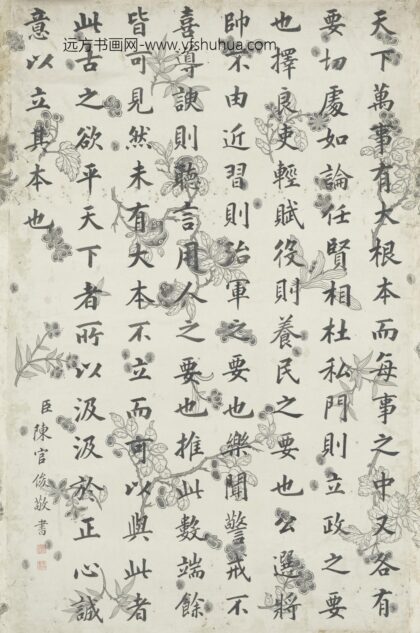 远方书画网-www.yfshuhua.com
天下萬事有大根本而每事之中又各有
要切處如論任賢相杜私門則立政之要
也擇良吏輕賦役則養民之要也公選將
帥不由近習則治軍之要也樂聞警戒不
喜導諛則聽言用人之要也推此數端餘
皆可見然未有大本不立而可以與此者
此古之欲平天下者所以汲汲於正心誠
意以立其本也
臣陳官俊敬書